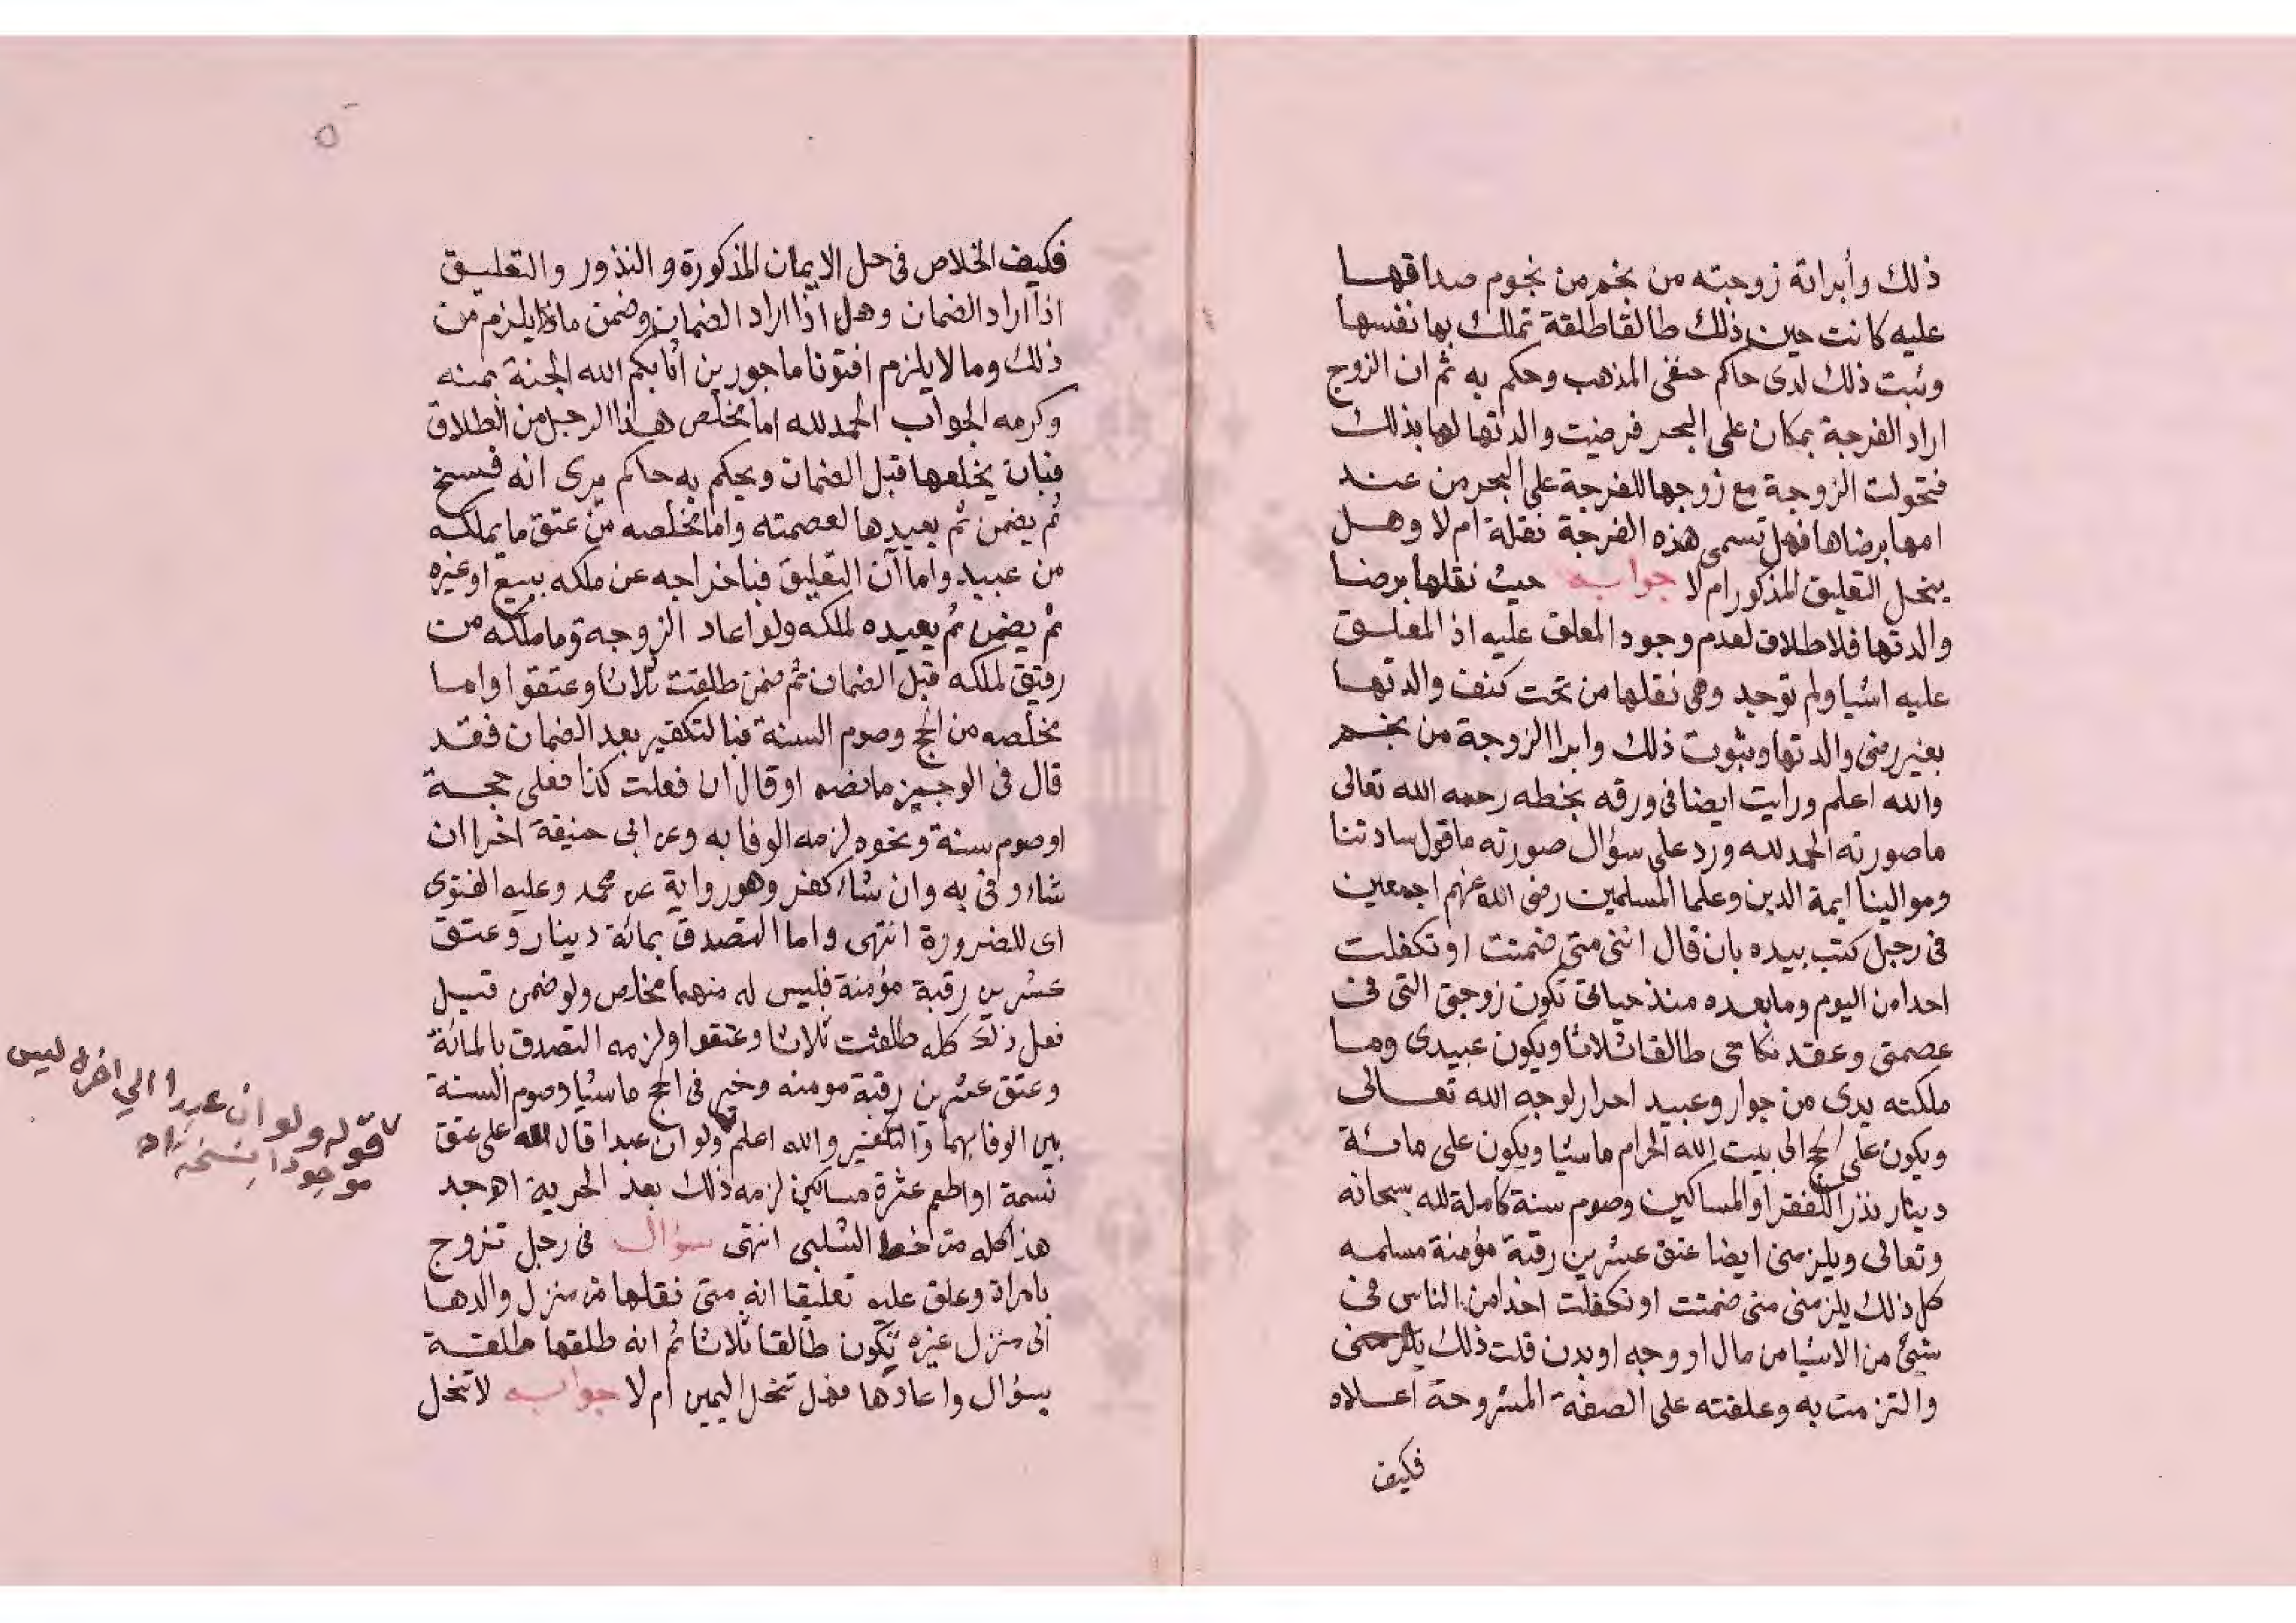 ذلك وأبراته زوجته من نجم من نجوم صداقها
عليه كانت حين ذلك طالقا طلقة تملك بها نفسها
وثبت ذلك لدى حاكم حنفى المذهب وحكم به ثم ان الزوج
اراد الفرجة بمكان على البحر فرضيت والدتها لها بذلك
فتحولت الزوجة مع زوجها للفرجة على البحر من عند
امها برضاها فهل تسمى هذه الفرجة نقلة ام لا وهل
ينحل التعليق المذكور ام لا جوابه حيث نقلها برضا
والدتها فلا طلاق لعدم وجود المعلق عليه اذ المعلق
عليه اشيا ولم توجد وهى نقلها من تحت كنف والدتها
بغير رضى والدتها وثبوت ذلك وابرا الزوجة من نجم
والله اعلم ورايت ايضا فى ورقه بخطه رحمه الله تعالى
ما صورته الحمد لله ورد على سؤال صورته ما قول سادتنا
وموالينا ايمة الدين وعلما المسلمين رضى الله عنهم اجمعين
فى رجل كتب بيده بان قال اننى متى ضمنت او تكفلت
احدا من اليوم وما بعده منذ حياتى تكون زوجتى التى فى
عصمتى وعقد نكاحى طالقا ثلاثا ويكون عبيدى وما
ملكته يدى من جوار وعبيد احرار لوجه الله تعالى
ويكون على الحج الى بيت الله الحرام ماشيا ويكون على مائة
دينار نذرا للفقرا والمساكين وصوم سنة كاملة لله سبحانه
وتعالى ويلزمنى ايضا عتق عشرين رقبة مؤمنة مسلمه
كل ذلك يلزمنى متى ضمنت او تكفلت احدا من الناس فى
شيئ من الاشيا من مال او وجه او بدن قلت ذلك يلزمنى
والتزمت به وعلقته على الصفة المشروحة اعلاه
فكيف
٥
فكيف الخلاص فى حل الايمان المذكورة والنذور والتعليق
اذا اراد الضمان وهل اذا اراد الضمان وضمن ماذا يلزم من
ذلك وما لا يلزم افتونا ماجورين اثابكم الله الجنة بمنه
وكرمه الجواب الحمد لله اما مخلص هذا الرجل من الطلاق
فبان يخلعها قبل الضمان ويحكم به حاكم يرى انه فسخ
ثم يضمن ثم يعيدها لعصمته واما مخلصه من عتق ما يملكه
من عبيد واما آن التعليق فباخراجه عن ملكه ببيع او غيره
ثم يضمن ثم يعيده لملكه ولو اعاد الزوجة وما ملكه من
رقيق لملكه قبل الضمان ثم ضمن طلقت ثلاثا وعتقوا واما
مخلصه من الحج وصوم السنة فبالتكفير بعد الضمان فقد
قال فى الوجيز ما نصه او قال ان فعلت كذا فعلى حجة
او صوم سنة ونحوه لزمه الوفا به وعن ابى حنيفة اخرا ان
شاء وفى به وان شاء كفر وهو رواية عن محمد وعليه الفتوى
اى للضرورة انتهى واما التصدق بمائة دينار وعتق
عشرين رقبة مؤمنة فليس له منهما مخلص ولو ضمن قبل
فعل ذلك كله طلقت ثلاثا وعتقوا ولزمه التصدق بالمائة
وعتق عشرين رقبة مومنه وخير فى الحج ماشيا وصوم السنة
بين الوفا بهما والتكفير والله اعلم ولو ان عبدا قال لله على عتق
نسمة او اطعم عشرة مساكين لزمه ذلك بعد الحرية اهـ جد
هذا كله من خط الشلبى انتهى سؤال فى رجل تزوج
بامراة وعلق عليه تعليقا انه متى نقلها من منزل والدها
الى منزل غيره تكون طالقا ثلاثا ثم انه طلقها طلقة
بسؤال واعادها فهل تنحل اليمين ام لا جوابه لا تنحل
قوله ولو ان عبدا الى اخره ليس
موجودا بنسخة